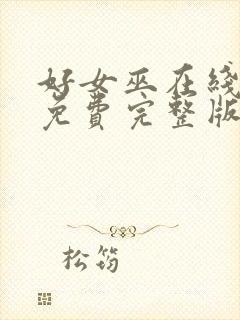 好女巫在线
免费完整版
松筠